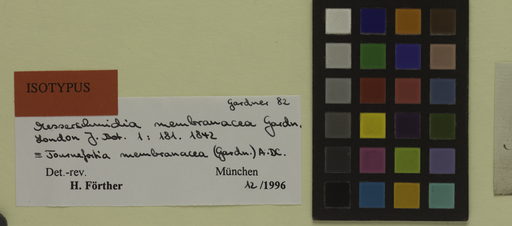 ISOTYPUS
Gardner 82
Messerschmidia membranacea Gardn.
London J. Bot. 1 : 181. 1842
= Tournefortia membranacea (Gardn.) A.DC.
Det.-rev. München
H. Förther 12 /1996